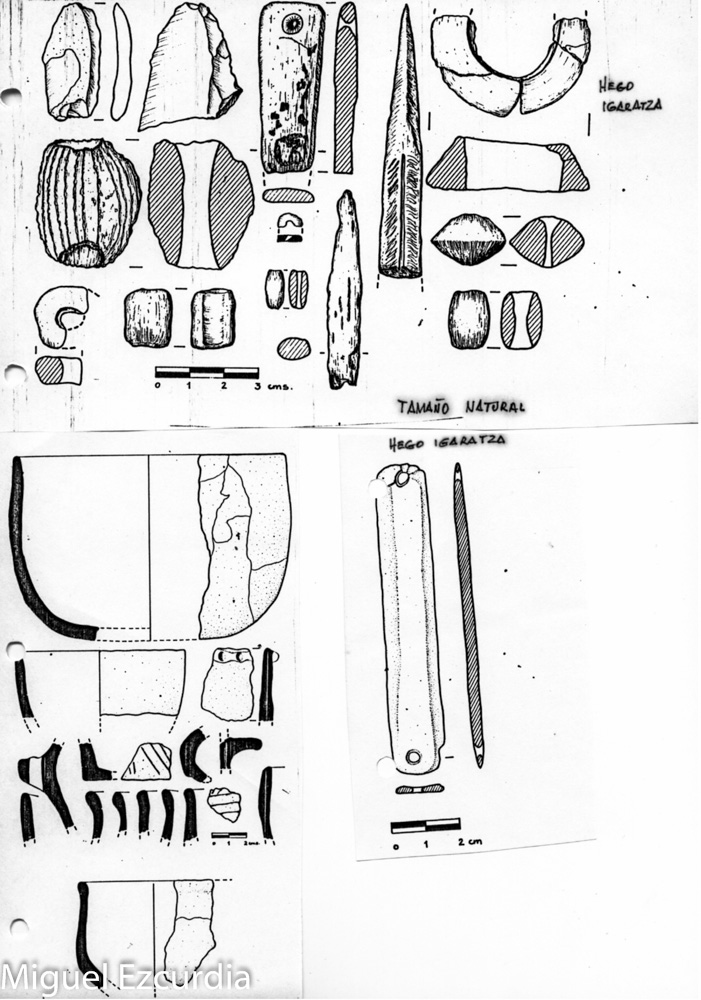 HEGO
IGARATZA
0 1 2 3 cms.
TAMAÑO NATURAL
HEGO IGARATZA
0 1 2 cms.
0 1 2 cm
Miguel Ezcurdia